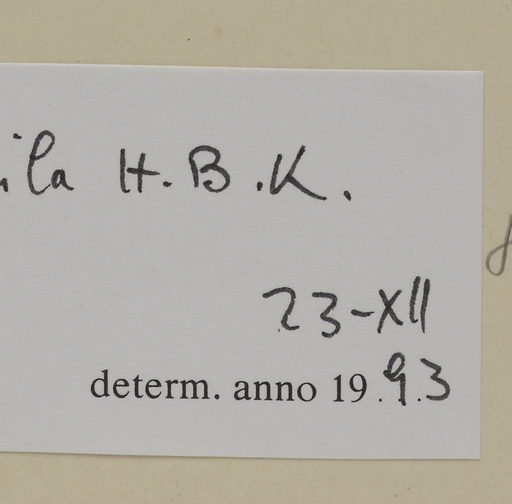 ila H.B.K.
23-XII
determ. anno 19.9.3